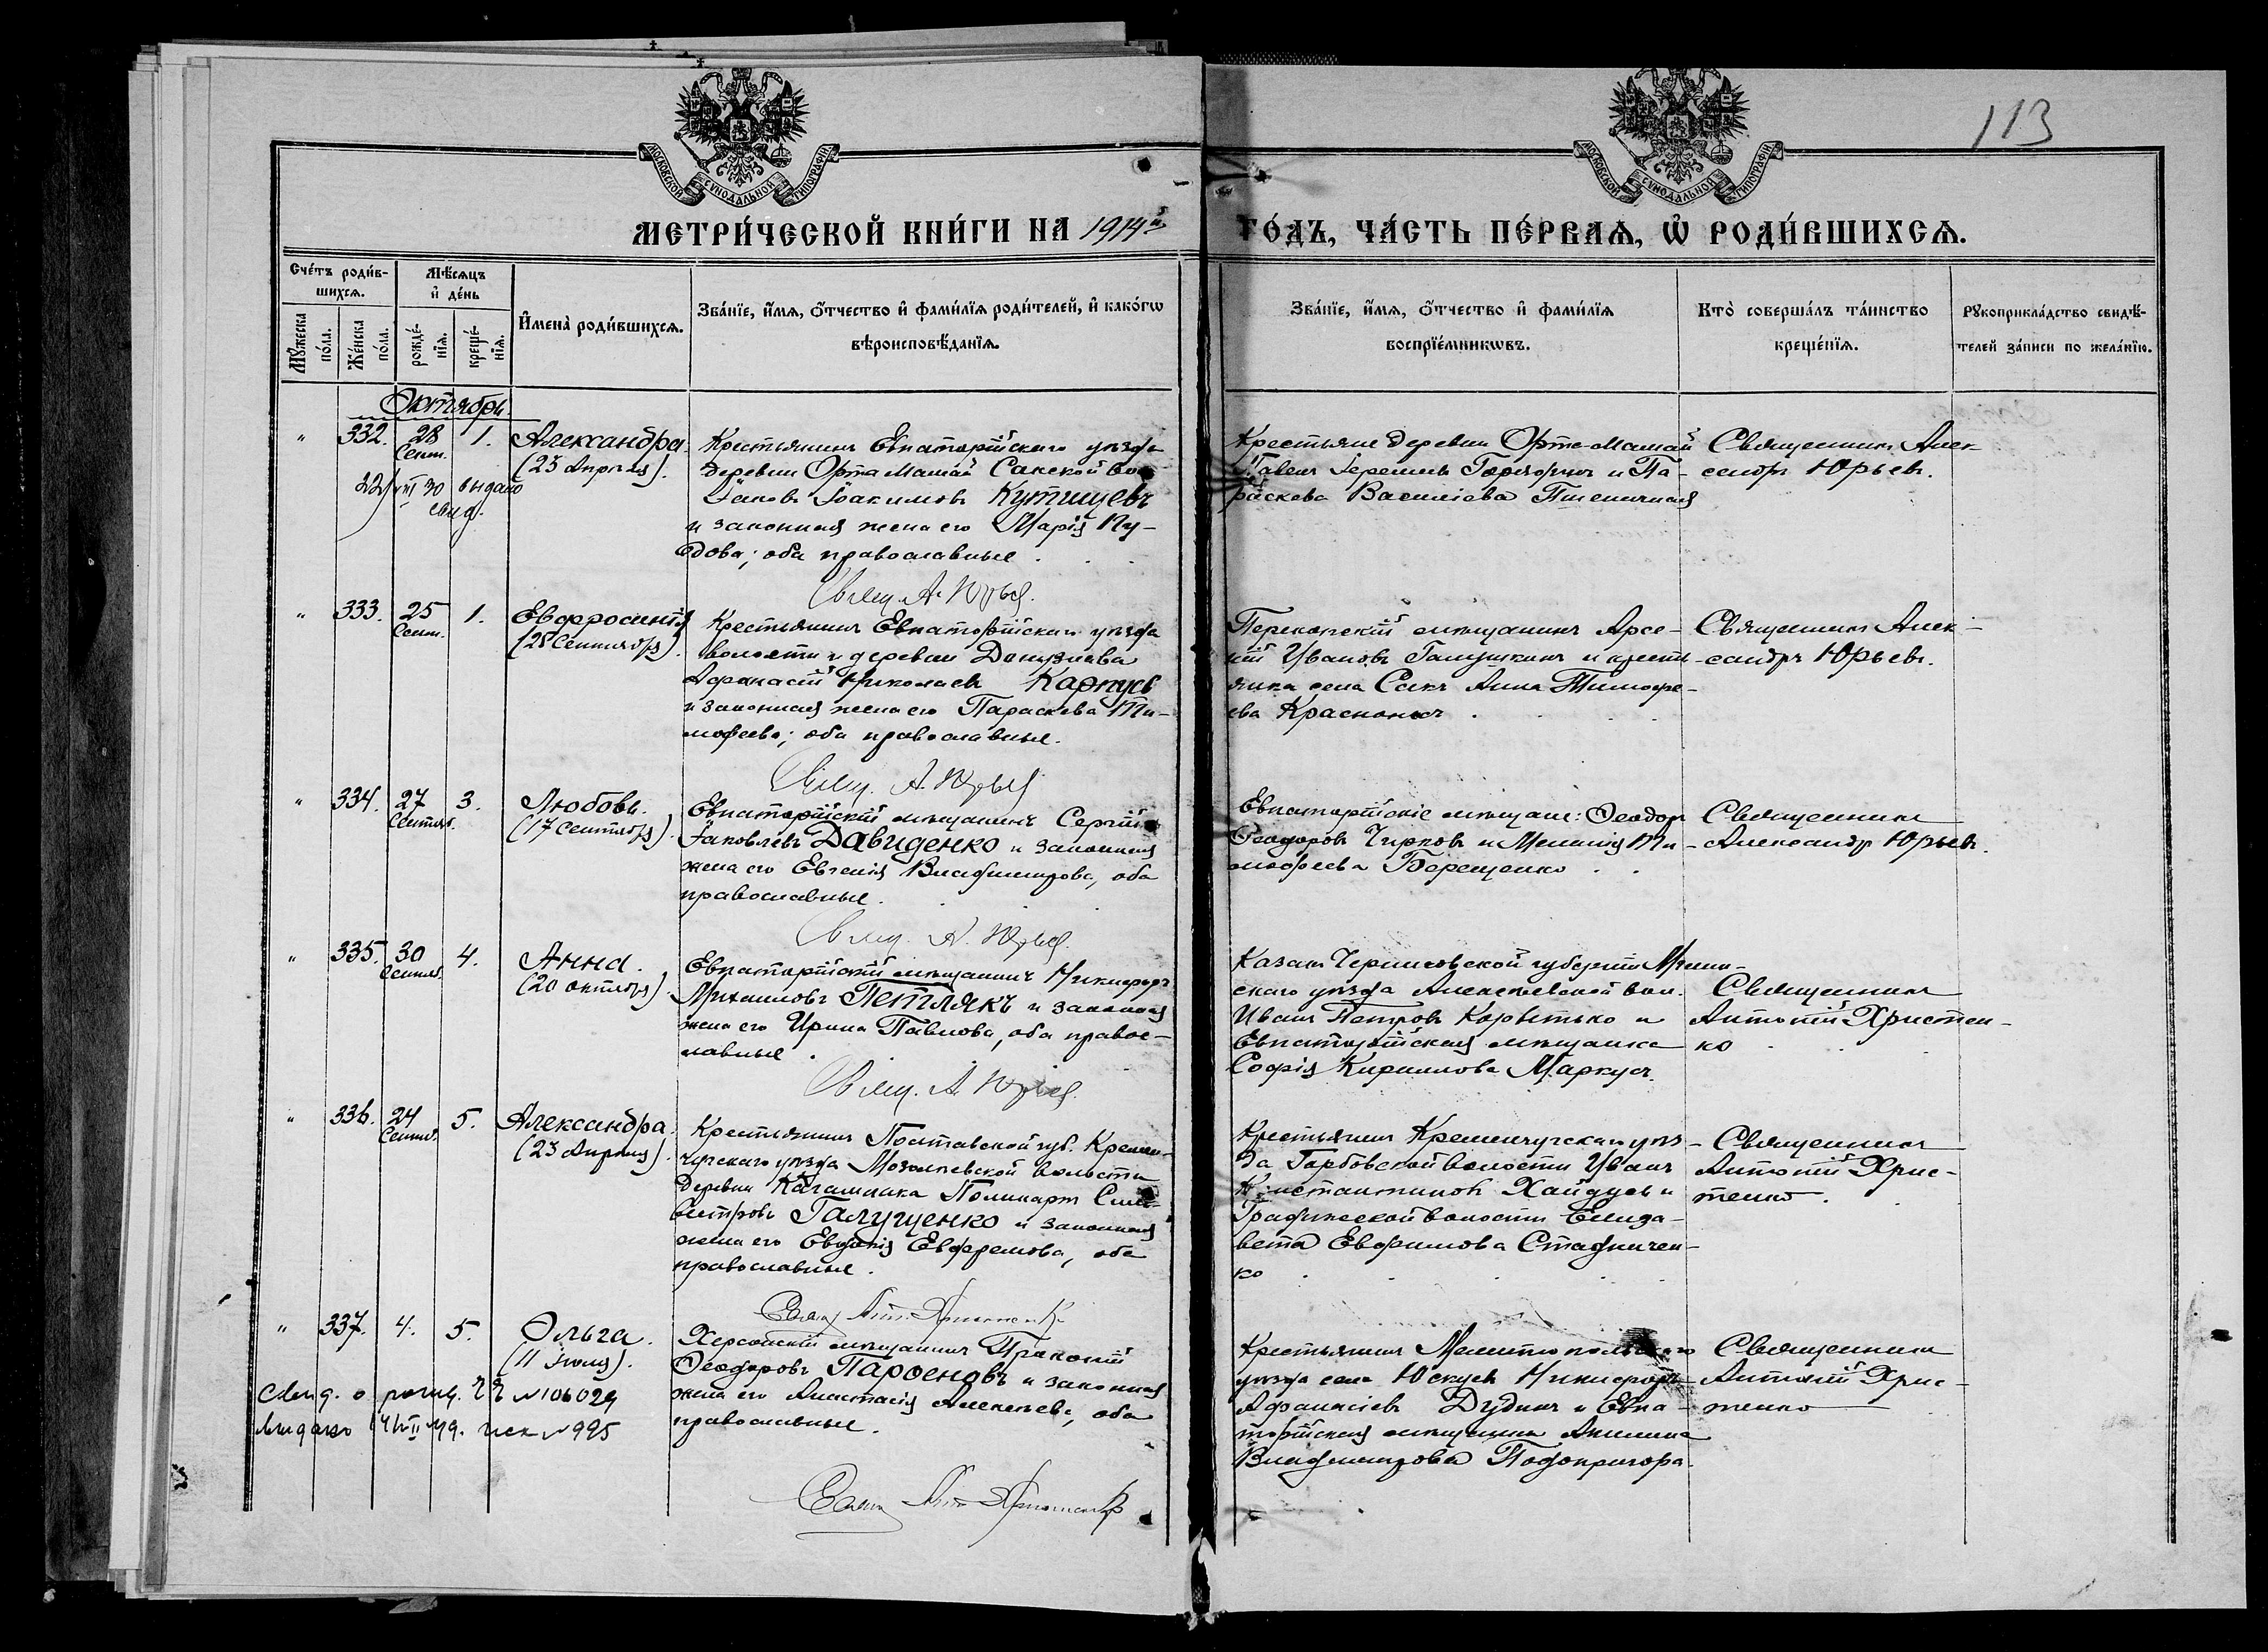 113
МОСКОВСКОЙ СѴНОДАЛЬНОЙ ТИПОГРАФІИ
МОСКОВСКОЙ СѴНОДАЛЬНОЙ ТИПОГРАФІИ
МЕТРИ́ЧЕСКОЙ КНИ́ГИ НА 1914й ГО́ДЪ, ЧА́СТЬ ПЕ́РВАѦ, Ѡ҆ РОДИ́ВШИХСѦ.
Сче́тъ роди́в-
шихсѧ.
Мꙋ́жеска по́ла.
Же́нска по́ла.
Мѣ́сѧцъ
и҆ де́нь
рожде́-
нїѧ.
креще́-
нїѧ.
И҆мена̀ роди́вшихсѧ.
Зва́нїе, и҆́мѧ, ѻ҆́тчество и҆ фами́лїѧ роди́телей, и҆ како́гѡ
вѣроисповѣ́данїѧ.
Зва́нїе, и҆́мѧ, ѻ҆́тчество и҆ фами́лїѧ
воспрїе́мникѡвъ.
Кто̀ соверша́лъ та́инство
креще́нїѧ.
Рꙋкоприкла́дство свидѣ́-
телей за́писи по жела́нїю.
Октябрь.
" 332. 28 Сент. 1. Александра.
(23 Апреля).
выдано
Крестьянинъ Евпаторійскаго уѣзда
деревни Орта Мамай Сакской вол.
Іаковъ Іоакимовъ Кутищевъ
и законная жена его Марія Ну-
дова; оба православные.
Свящ. А. Юрьев.
Крестьяне деревни Орта-Мамай
Павелъ
и Па-
раскева Василіева Пшеничная
Священникъ Алек-
сандръ Юрьевъ.
" 333. 25 Сент. 1. Евфросинія
(25 Сентября).
Крестьянинъ Евпаторійскаго уѣзда
волости и деревни Донузлава
Афанасій Николаевъ Карпусь
и законная жена его Параскева Ти-
мофеева; оба православные.
Свящ. А. Юрьев
Перекопскій мѣщанинъ Арсе-
ній Ивановъ Галушкинъ и кресть-
янка села Сакъ Анна Тимофе-
ева
Священникъ Алек-
сандръ Юрьевъ.
" 334. 27 Сентяб. 3. Любовь.
(17 Сентября).
Евпаторійскій мѣщанинъ Сергій
Іаковлевъ Давиденко и законная
жена его Евгенія Владимирова, оба
православные.
Свящ. А. Юрьев.
Евпаторійскіе мѣщане: Ѳеодоръ
Ѳеодоровъ Чирковъ и Меланія Ти-
мофеева
Священникъ
Александръ Юрьевъ.
" 335. 30 Сентяб. 4. Анна.
(20 октября)
Евпаторійскій мѣщанинъ Никифоръ
Михаиловъ Петлякъ и законная
жена его Ирина Павлова, оба право-
славные.
Свящ. А. Юрьев.
Казакъ Черниговской губерніи Мглин-
скаго уѣзда Алексѣевской вол.
Иванъ Петровъ и
Евпаторійская мѣщанка
Софія Кириллова Маркусъ.
Священникъ
Антоній Христен-
ко
" 336. 24 Сентяб. 5. Александра.
(23 Апреля).
Крестьянинъ Полтавской губ. Кремен-
чугскаго уѣзда волости
деревни Поликарпъ Силь-
вестровъ Галущенко и законная
жена его Евдокія Евфремова, оба
православные.
Свящ. Ант. Христенко
Крестьянинъ Кременчугскаго уѣз-
да волости Иванъ
Константиновъ и
волости Елиза-
вета Евфимова Стадничен-
ко
Священникъ
Антоній Хрис-
тенко.
" 337. 4. 5. Ольга.
(11 Іюля).
№106029
№ 995
Херсонскій мѣщанинъ Прокопій
Ѳеодоровъ Парѳеновъ и законная
жена его Анастасія Алексѣева, оба
православные.
Свящ. Ант. Христенко
Крестьянинъ Мелитопольскаго
уѣзда села Никифоръ
Афанасіевъ Дудинъ и Евпа-
торійская мѣщанка Акилина
Владимирова Подопригора.
Священникъ
Антоній Хрис-
тенко